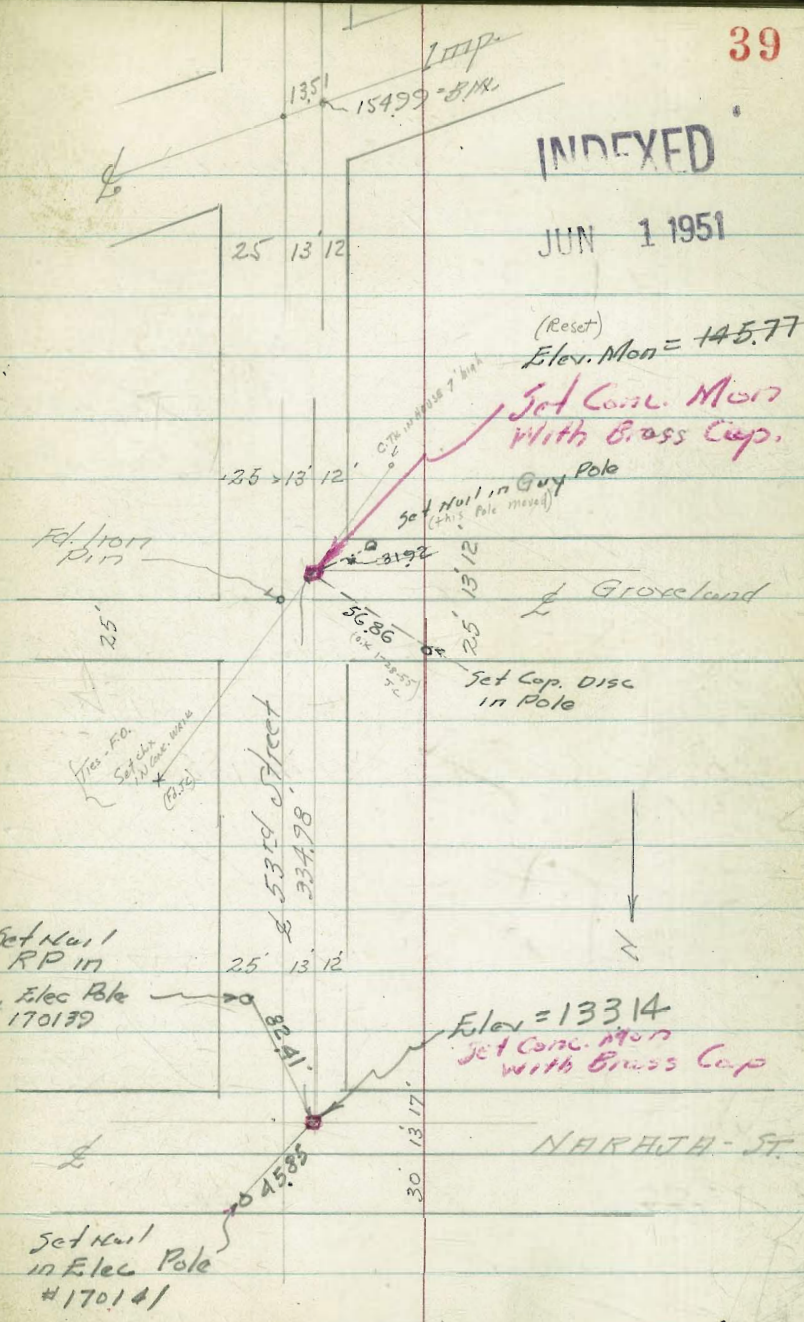 39
Imp.
13.51
154.99 = B.M.
℄
INDEXED
JUN 1 1951
25 13' 12'
(Reset)
Elev. Mon = 145.77
Set Conc. Mon
With Brass Cap.
C.TK. IN HOUSE 7' high
25 13' 12'
Set Nail in Guy Pole
(this Pole moved)
31.92
Fd. Iron
Pin
25' 13' 12'
℄ Groveland
25'
56.86
(O.K. 1-28-55)
Set Cop. Disc
in Pole
Ties - F.O.
Set chx
IN Conc. WALK
℄ 53rd Street
334.98'
N
Set Nail
RP in
Elec Pole
170139
25' 13' 12'
82.41'
Elev = 133.14
Set Conc. Mon
With Brass Cap
30' 13' 17'
℄
NARAJA - ST.
45.85
Set Nail
in Elec Pole
#170141